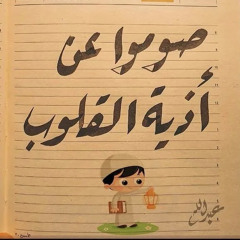 صوموا عن
أذية القلوب
عبدالله